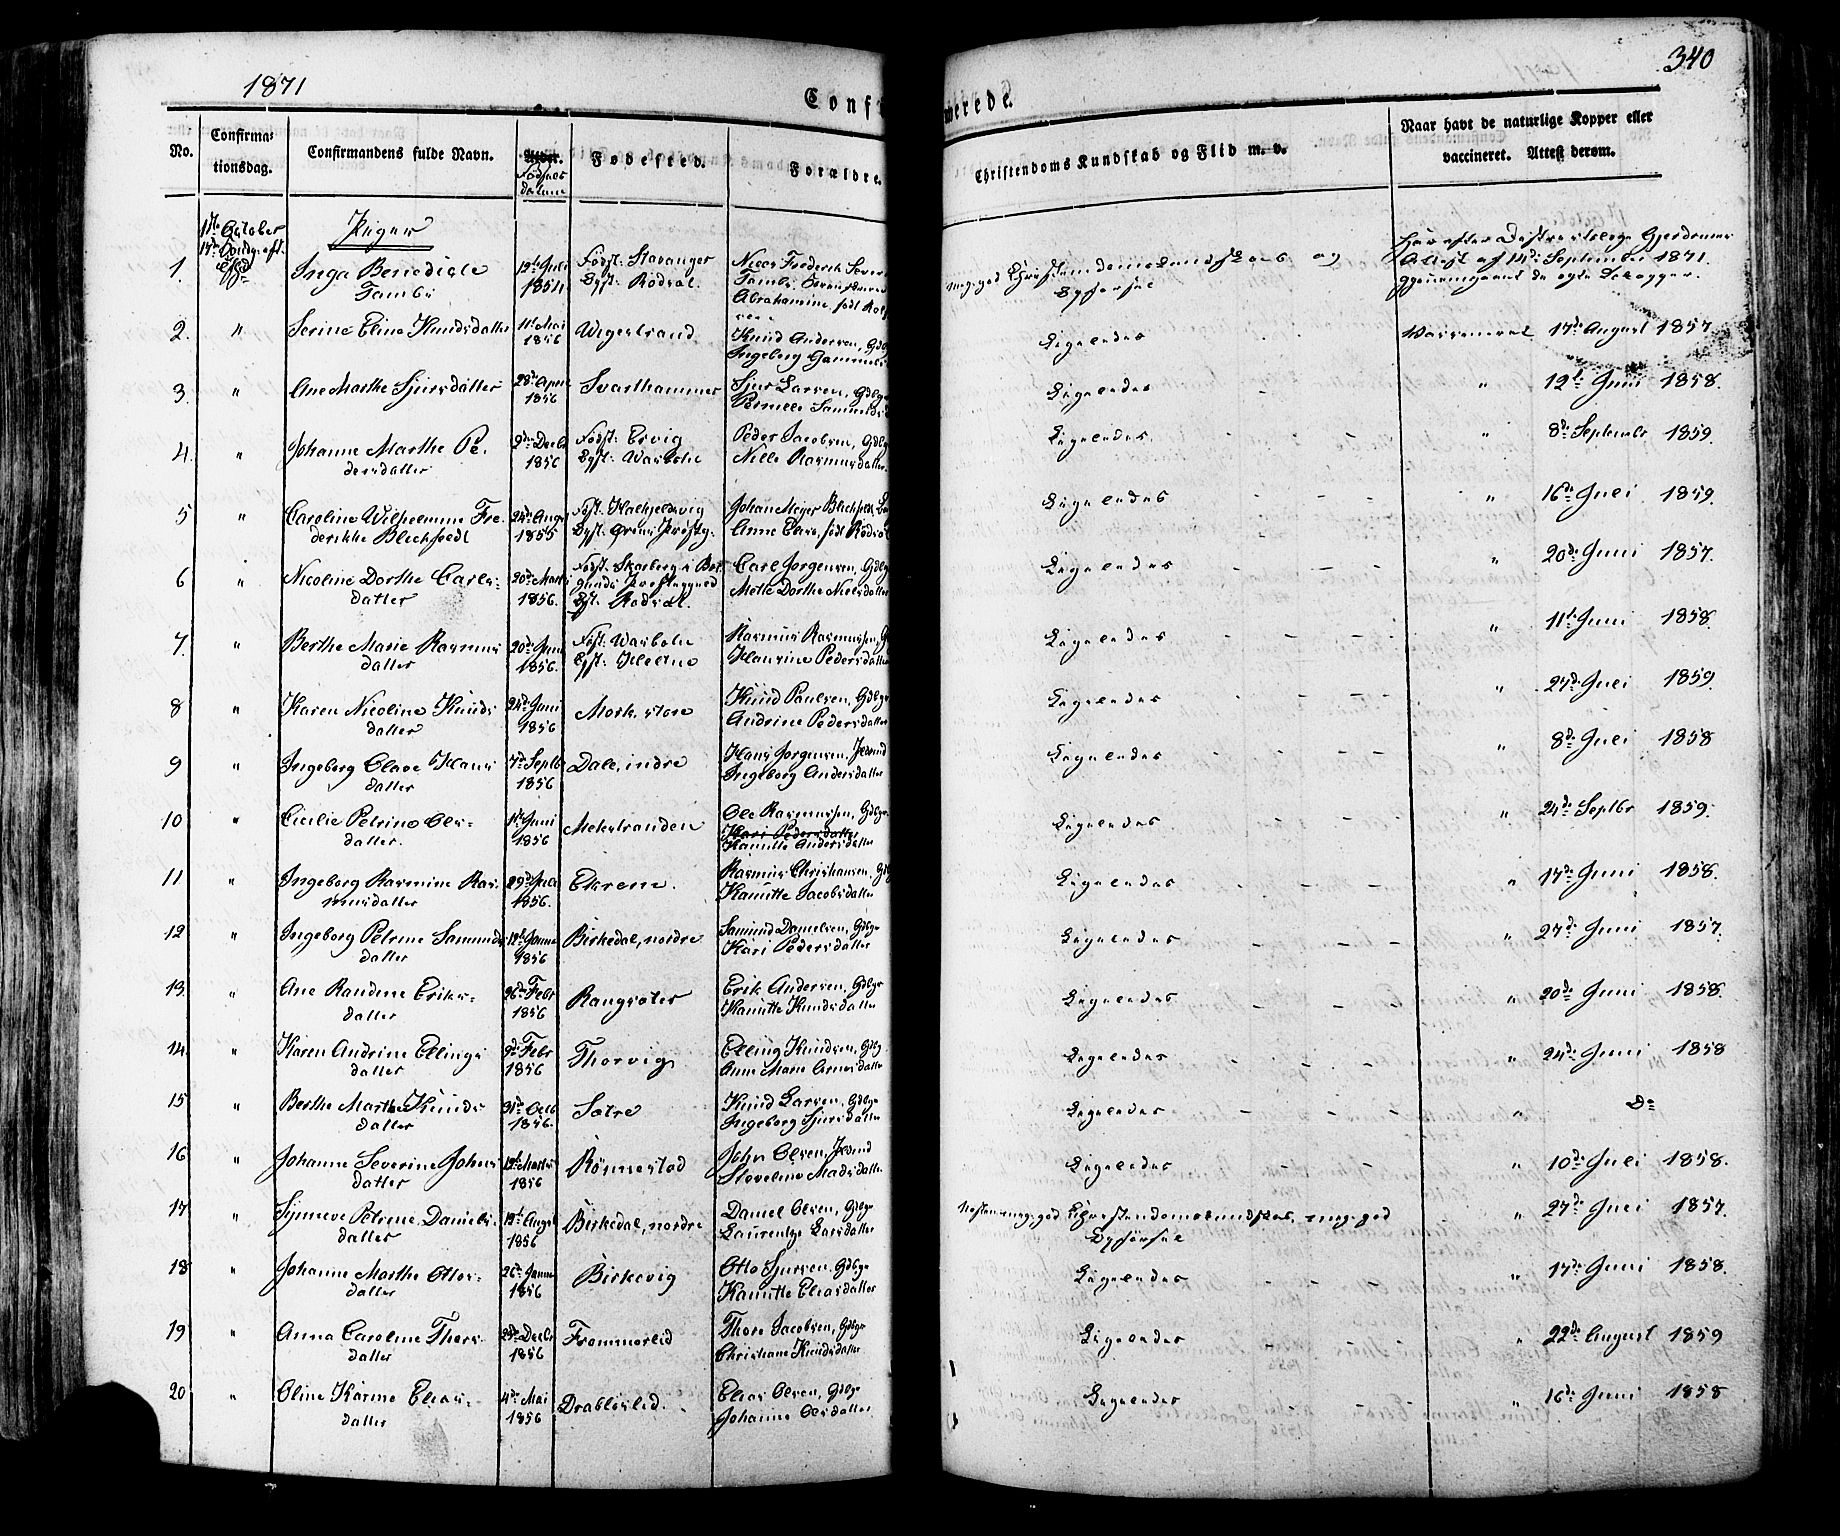 1871
340
Conf
merede.
No.
Confirma-
tionsdag.
Confirmandens fulde Navn.
Alder.
Fødsels
datum
Fødested.
Forældre.
Christendoms Kundskab og Flid m. v.
Naar havt de naturlige Kopper eller
vaccineret. Attest derom.
1ste October
Piger
1. Inga Benedicte
Fødst: Stavanger
Opf: Rödsæt.
1854
Abrahamine, født
meg. god Christendomskundskab og
Opførsel
Attest af 14de Septembr 1871.
2. " Serine Eline Knudsdatter
11te Mai
1856
Wigestrand
Knud Andersen, Gdbr
Ingeborg
Ligeledes
Vaccineret 17de August 1857.
3. " Ane Marthe Sjursdatter
28de April
1856
Svarthammer
Sjur Larsen, Gdbr
Pernille
Ligeledes
" 12te Juni 1858.
4. " Johanne Marthe Pe-
dersdatter
9de Decbr
1856
Fødst: Ervig
Peder Jacobsen, Gdbr
Nille Rasmusdatter
Ligeledes
" 8de Septembr 1859.
5 " Caroline Wilhelmine Fre-
derikke Blichfeldt
24de Aug
1855
Johan Meyer Blichfeldt
Anne Elise, født Rödsæt
Ligeledes
" 16de Juli 1859.
6 " Nicoline Dorthe Carls-
datter
20de Marts
1856.
Opf: Rödsæt.
Carl Jørgensen, Gdbr
Mette Dorthe Nielsdatter
Ligeledes
" 20de Juni 1857.
7. " Berthe Marie Rasmus
datter
20de Juni
1856.
Rasmus Rasmussen, G
Pedersdatter
Ligeledes
" 11te Juni 1858.
8 " Karen Nicoline Knuds
datter
24de Juni
1856
Mork, store
Knud Paulsen, Gdbr
Andrine Pedersdatter
Ligeledes
" 27de Juli 1859.
9 " Ingeborg Olave Hans
datter
7de Septb
1856
Dale, indre
Hans Jørgensen,
Ingeborg Andersdatter
Ligeledes
" 8de Juli 1858
10 " Cicilie Petrine Ols-
datter.
11te Juni
1856
Mekstranden
Ole Rasmussen, Gdbr
Kari Pedersdatter
Andersdatter
Ligeledes
" 24de Septbr 1859.
11 " Ingeborg Rasmine Ras-
musdatter
29de Juli
1856.
Ekrene.
Rasmus Christiansen, Gdb
Kanutte Jacobsdatter
Ligeledes
" 17de Juni 1858.
12 " Ingeborg Petrine Samunds
datter
1856
Birkedal, nordre
Samund Danielsen, Gdbr
Kari Pedersdatter
Ligeledes
" 27de Juni 1857.
13. " Ane Randine Eriks-
datter
26de Febr
1856
Rangsæter
Erik Andersen, Gdbr
Kanutte Knudsdatter
Ligeledes
" 20de Juni 1858.
14. " Karen Andrine Ellings
datter
9de Febr
1856
Thorvig
Elling Knudsen, Gdb
Ane Marie Arnesdatter
Ligeledes
" 24de Juni 1858
15 " Berthe Marthe Knuds
datter
31te Octb
1856.
Sætre
Knud Larsen, Gdbr
Ingeborg Sjursdatter
Ligeledes
" Do
16 " Johanne Severine Johns
datter
1856
Rönnestad
John Olsen,
Madsdatter
Ligeledes
" 10de Juli 1858.
17 " Synneve Petrine Daniels
datter
1856
Birkedal, nordre
Daniel Olsen, Gdbr
Laurentze Larsdatter
Næsten meg. god Christendomskundskab, meg. god
Opførsel
" 27de Juli 1857.
18 " Johanne Marthe Ottos-
datter
26de Janu
1856
Birkevig
Otto Sjursen, Gdbr
Kanutte Eliasdatter
Ligeledes
" 17de Juni 1858.
19 " Anna Caroline Thors-
datter
23de Decbr
1856
Frammerlid
Thore Jacobsen, Gdbr
Christiane Knudsdatter
Ligeledes
" 22de August 1859
20 " Oline Karine Elias-
datter
4de Mai
1856
Drabløslid.
Elias Olsen, Gdbr
Johanne Olsdatter
Ligeledes
" 16de Juni 1858